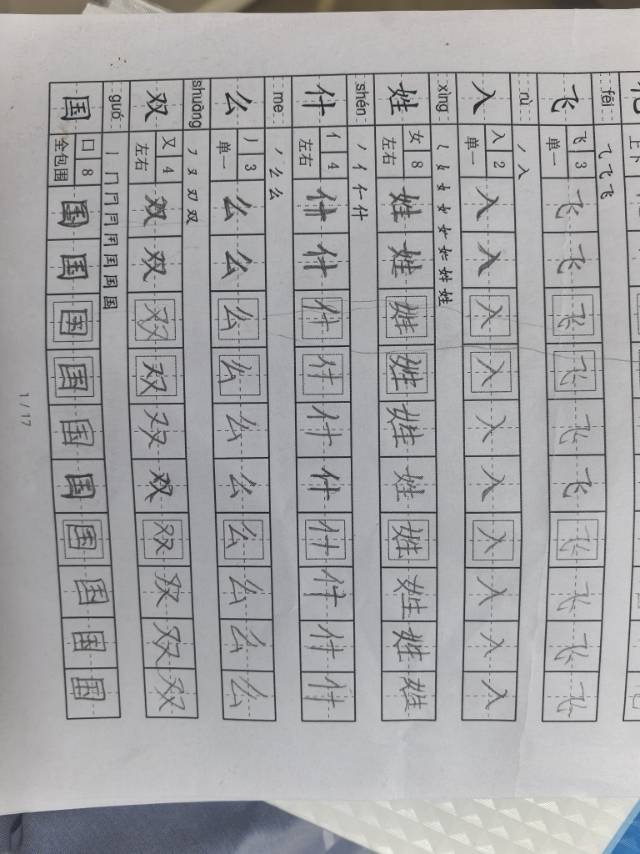 上下
fēi 乁 飞 飞
飞 飞 3 单一 飞 飞 飞 飞 飞 飞 飞 飞 飞 飞
rù 丿 入
入 入 2 单一 入 入 入 入 入 入 入 入 入 入
xìng 女 女 姓 姓
姓 女 8 左右 姓 姓 姓 姓 姓 姓 姓 姓 姓 姓
shén 丿 亻 仁 什
什 亻 4 左右 什 什 什 什 什 什 什 什 什 什
me 丿 么 么
么 丿 3 单一 么 么 么 么 么 么 么 么 么 么
shuāng フ 又 刃 双
双 又 4 左右 双 双 双 双 双 双 双 双 双 双
guó 丨 冂 冂 国 国 国
国 囗 8 全包围 国 国 国 国 国 国 国 国 国 国
1 / 17